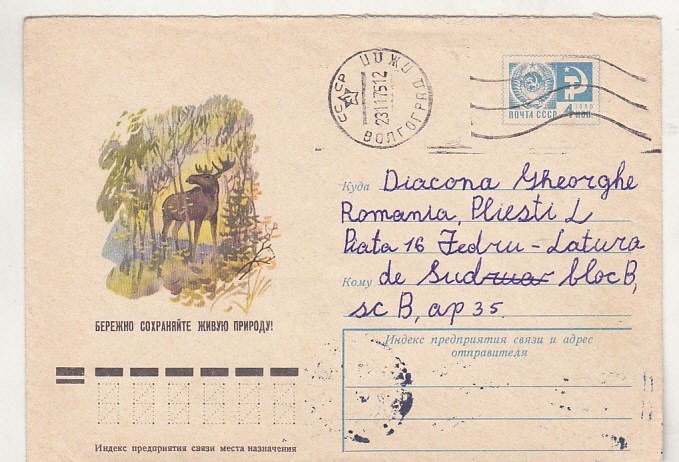 СССР ПОЖД ВОЛГОГРАД
23117512
1966
ПОЧТА СССР 4 КОП.
Куда Diacona Gheorghe
Romania, Pliesti L
Piata 16 Fedru - Latura
Кому de Sud bloc B,
sc B, ap 35.
БЕРЕЖНО СОХРАНЯЙТЕ ЖИВУЮ ПРИРОДУ!
Индекс предприятия связи и адрес
отправителя
Индекс предприятия связи места назначения